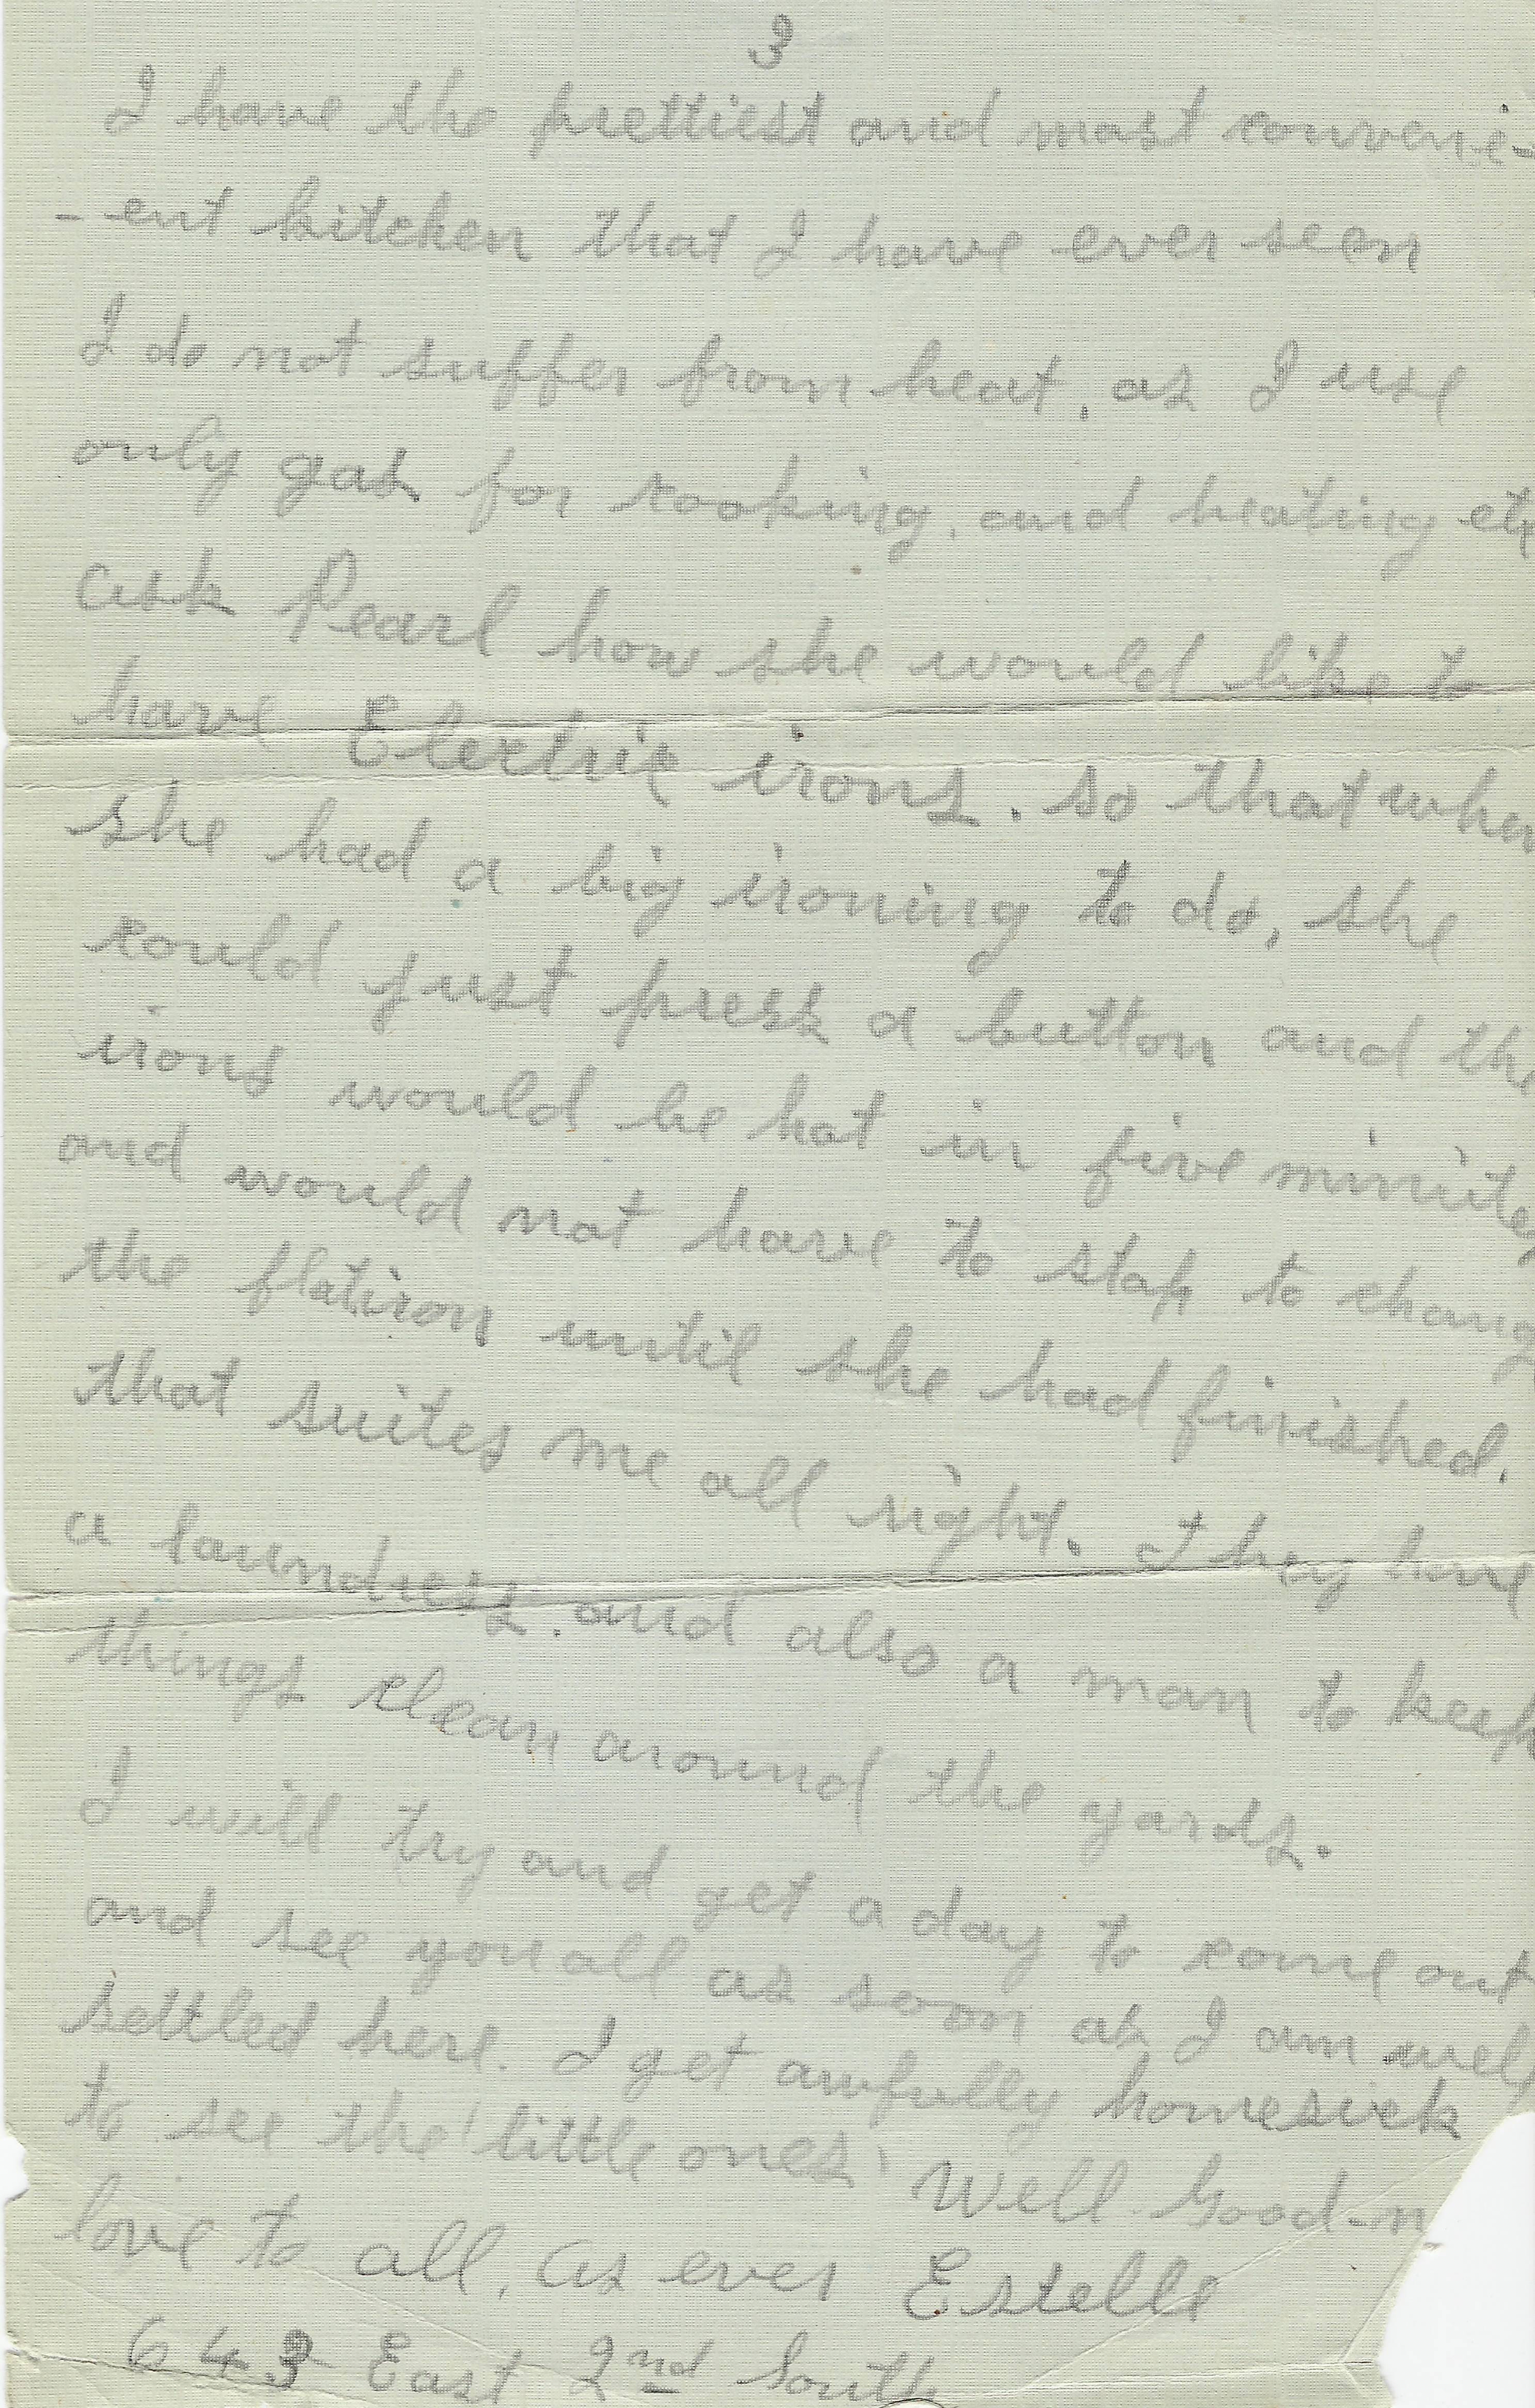 3
I have the prettiest and most conveni-
- ent kitchen that I have ever seen
I do not suffer from heat, as I use
only gas for cooking, and heating etc
ask Pearl how she would like to
have Electric irons. so that when
she had a big ironing to do, she
could just press a button and the
irons would be hot in five minutes
and would not have to stop to change
the flatiron until she had finished.
that suites me all right. They have
a laundress. and also a man to keep
things clean around the yards.
I will try and get a day to come out
and see you all as soon as I am well
settled here. I get awfully homesick
to see the 'little ones' Well Good-n
love to all. as ever Estelle
643 East 2nd South